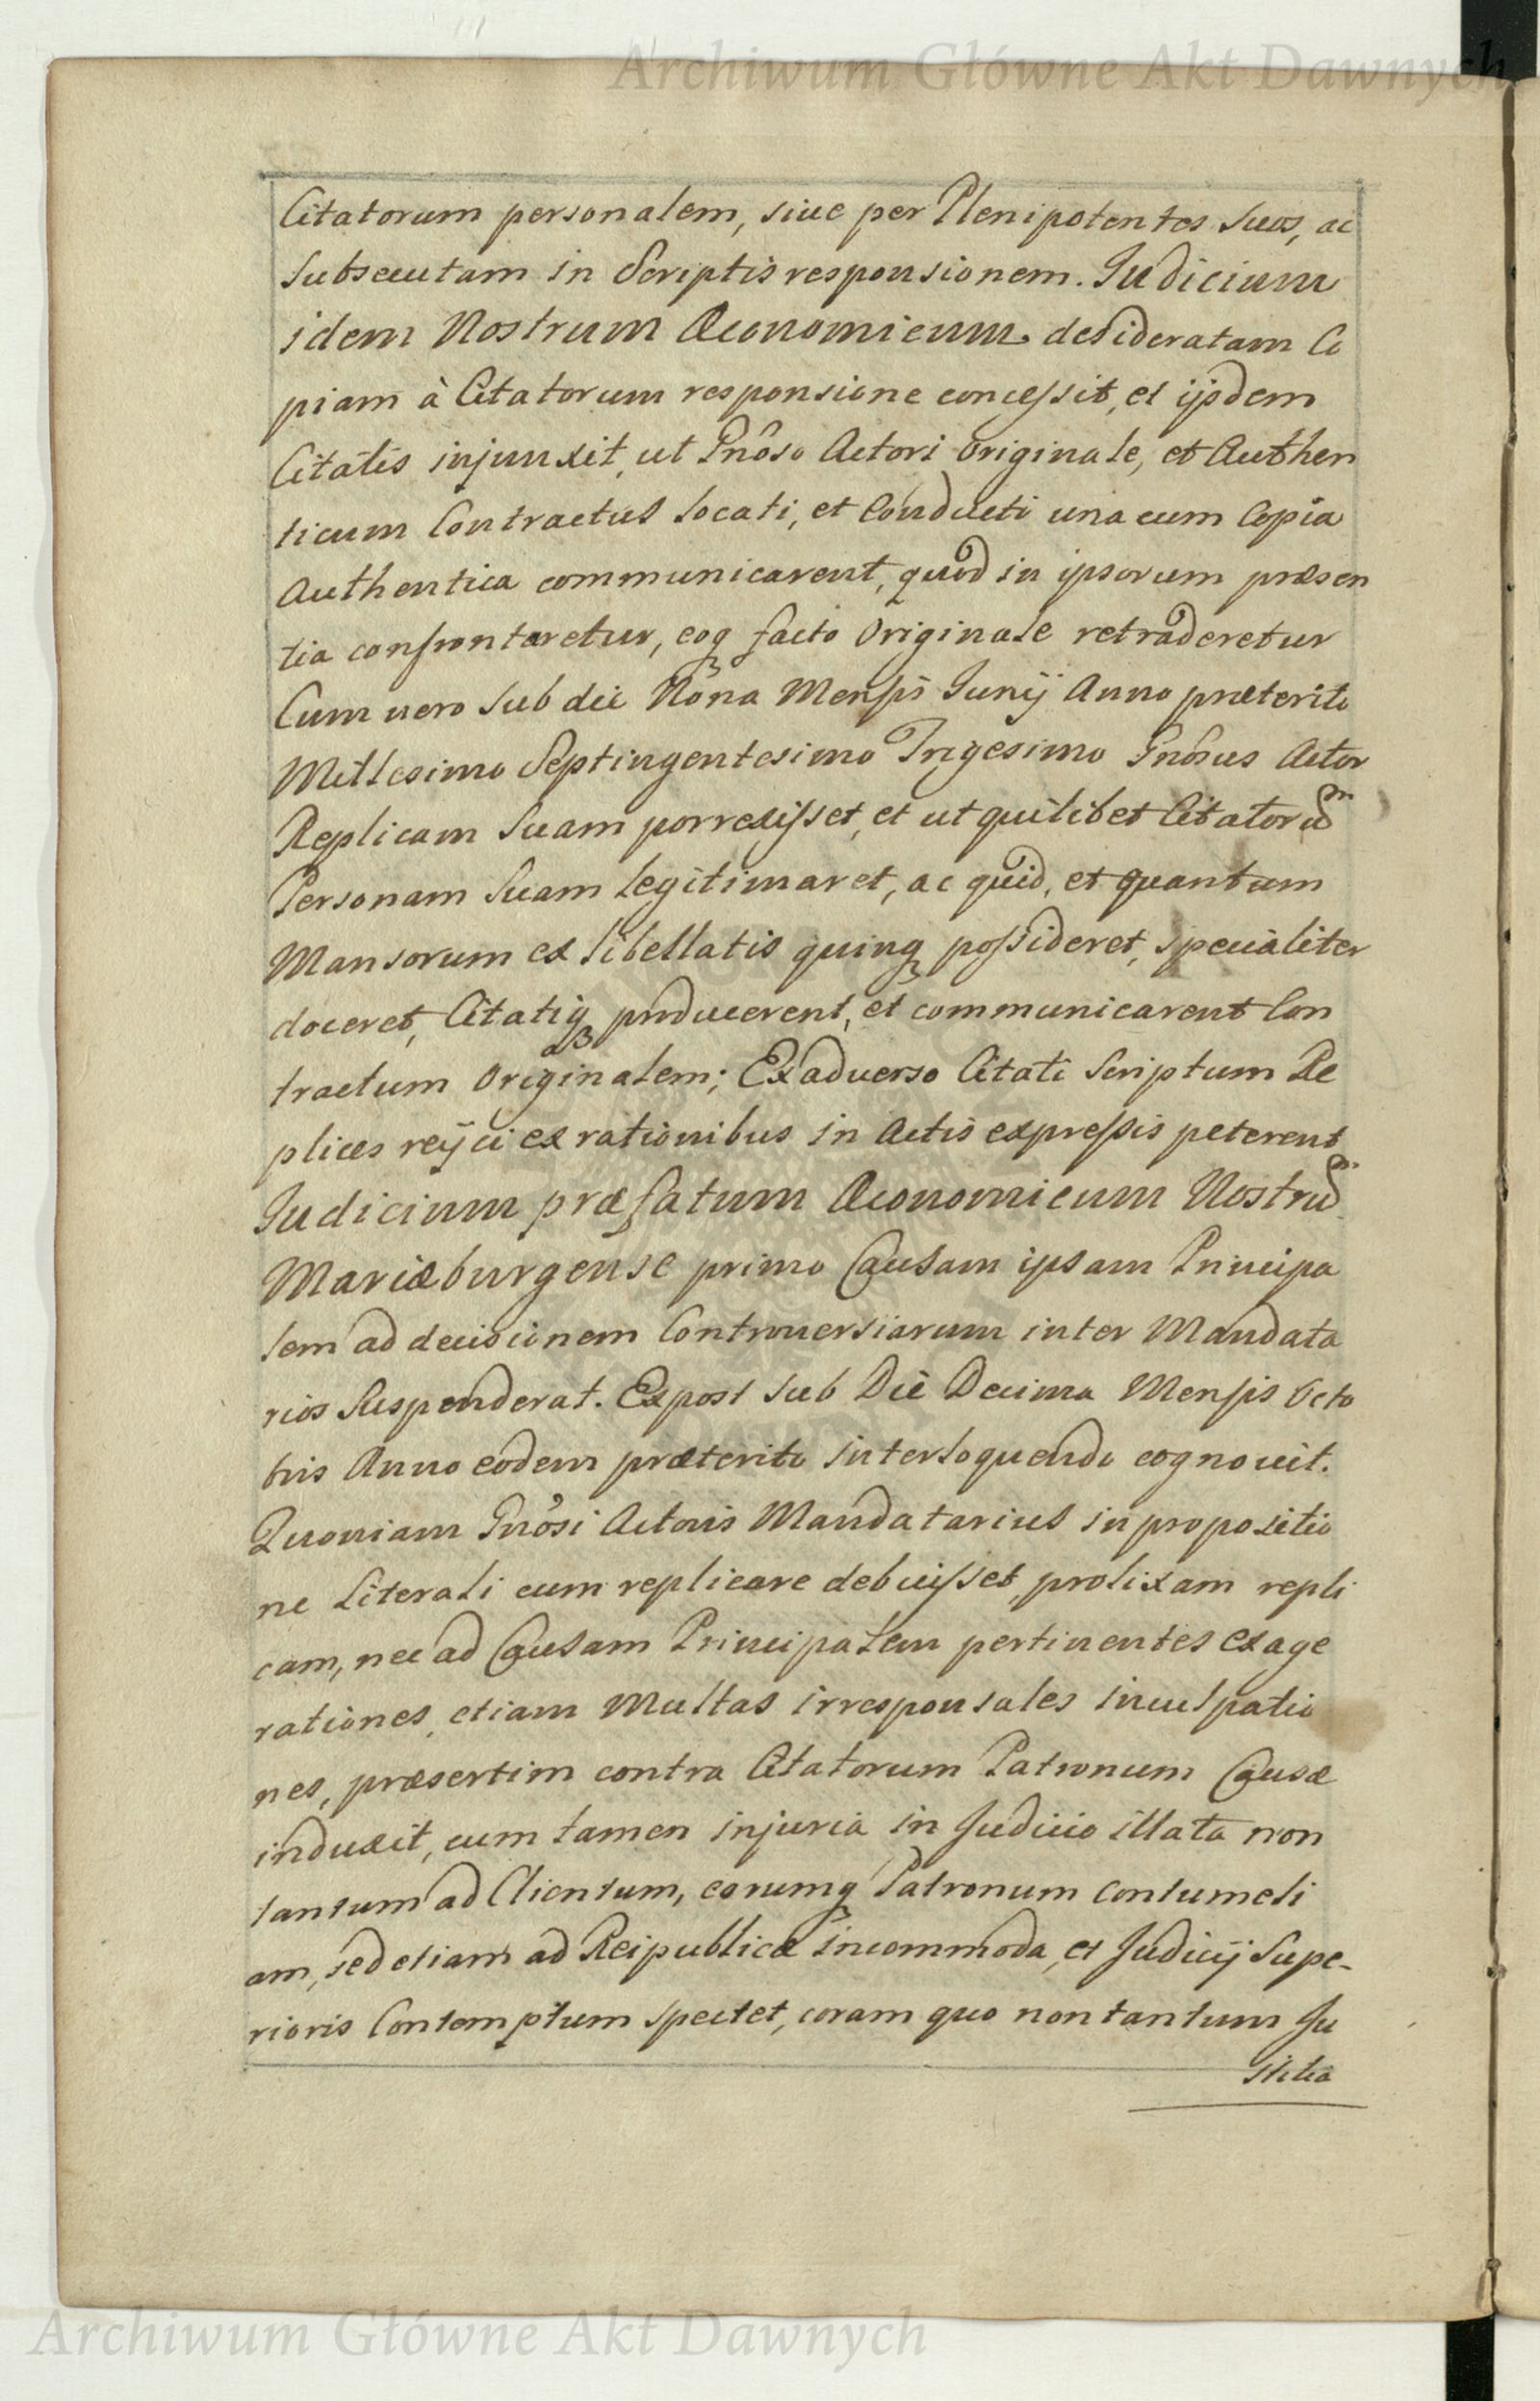 Archiwum Główne Akt Dawnych
Citatorum personalem, siue per Plenipotentes Suos, ac
Subsecutam in Scriptis responsionem. Judicium
idem Nostrum Œconomicum desideratam Co
piam à Citatorum responsione concessit, et ijsdem
Citatis injunxit, ut Gnôso Actori Originale, et Authen
ticum Contractus locati, et Conducti una cum Copia
Authentica communicarent, quod in ipsorum præsen
tia confrontaretur, eoq facto Originale retraderetur
Cum uero Sub die Nona Mensis Junij Anno præterito
Millesimo Septingentesimo Trigesimo Gnôsus Actor
Replicam Suam porrexisset, et ut quilibet Citatorum
Personam Suam legitimaret, ac quid, et quantum
Mansorum ex libellatis quinq possideret, specialiter
doceret, Citatiq producerent, et communicarent Con
tractum Originalem; Ex aduerso Citati Scriptum Re
plices reijci ex rationibus in Actis expressis peterent
Judicium præfatum Œconomicum Nostrum
Mariæburgense primo Causam ipsam Principa
lem ad decisionem Controuersiarum inter Mandata
rios Suspenderat. Expost Sub Die Decima Mensis Octo
bris Anno eodem præterito interloquendo cognouit.
Quoniam Gnôsi Actoris Mandatarius in propositio
ne Literali cum replicare debuisset, prolixam repli
cam, nec ad Causam Principalem pertinentes exage
rationes, etiam Multas irresponsales inculpatio
nes, præsertim contra Citatorum Patronum Causæ
induxit, cum tamen injuria in Judicio illata non
tantum ad Clientum, eorumq Patronum Contumeli
am, sed etiam ad Reipublicæ incommoda, et Judicij Supe-
rioris Contemptum spectet, coram quo non tantum Ju
stitia
Archiwum Główne Akt Dawnych